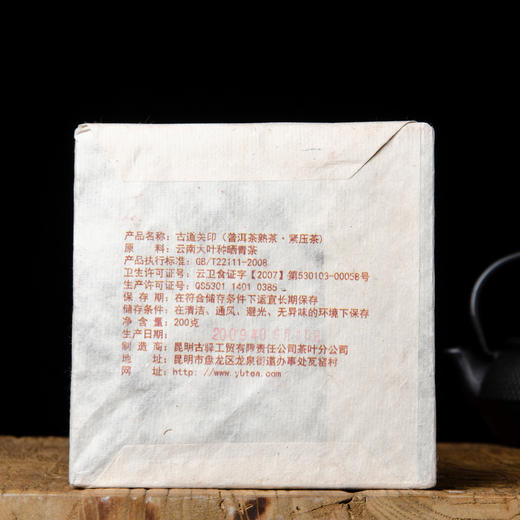 产品名称：古道关印（普洱茶熟茶·紧压茶）
原　　料：云南大叶种晒青茶
产品执行标准：GB/T22111-2008
卫生许可证号：云卫食证字【2007】第530103-00058号
生产许可证号：QS5301 1401 0385
保 存 期：在符合储存条件下适宜长期保存
储存条件：在清洁、通风、避光、无异味的环境下保存
净 含 量：200克
生产日期：
制 造 商：昆明古驿工贸有限责任公司茶叶分公司
地　　址：昆明市盘龙区龙泉街道办事处瓦窑村
网　　址：http://www.ybtea.com